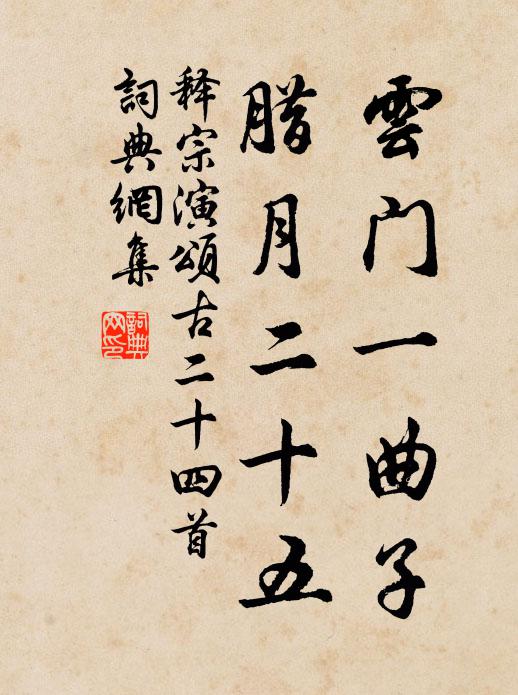 雲门一曲子
腊月二十五
释宗演頌古二十四首
詞典網集
詞典網印